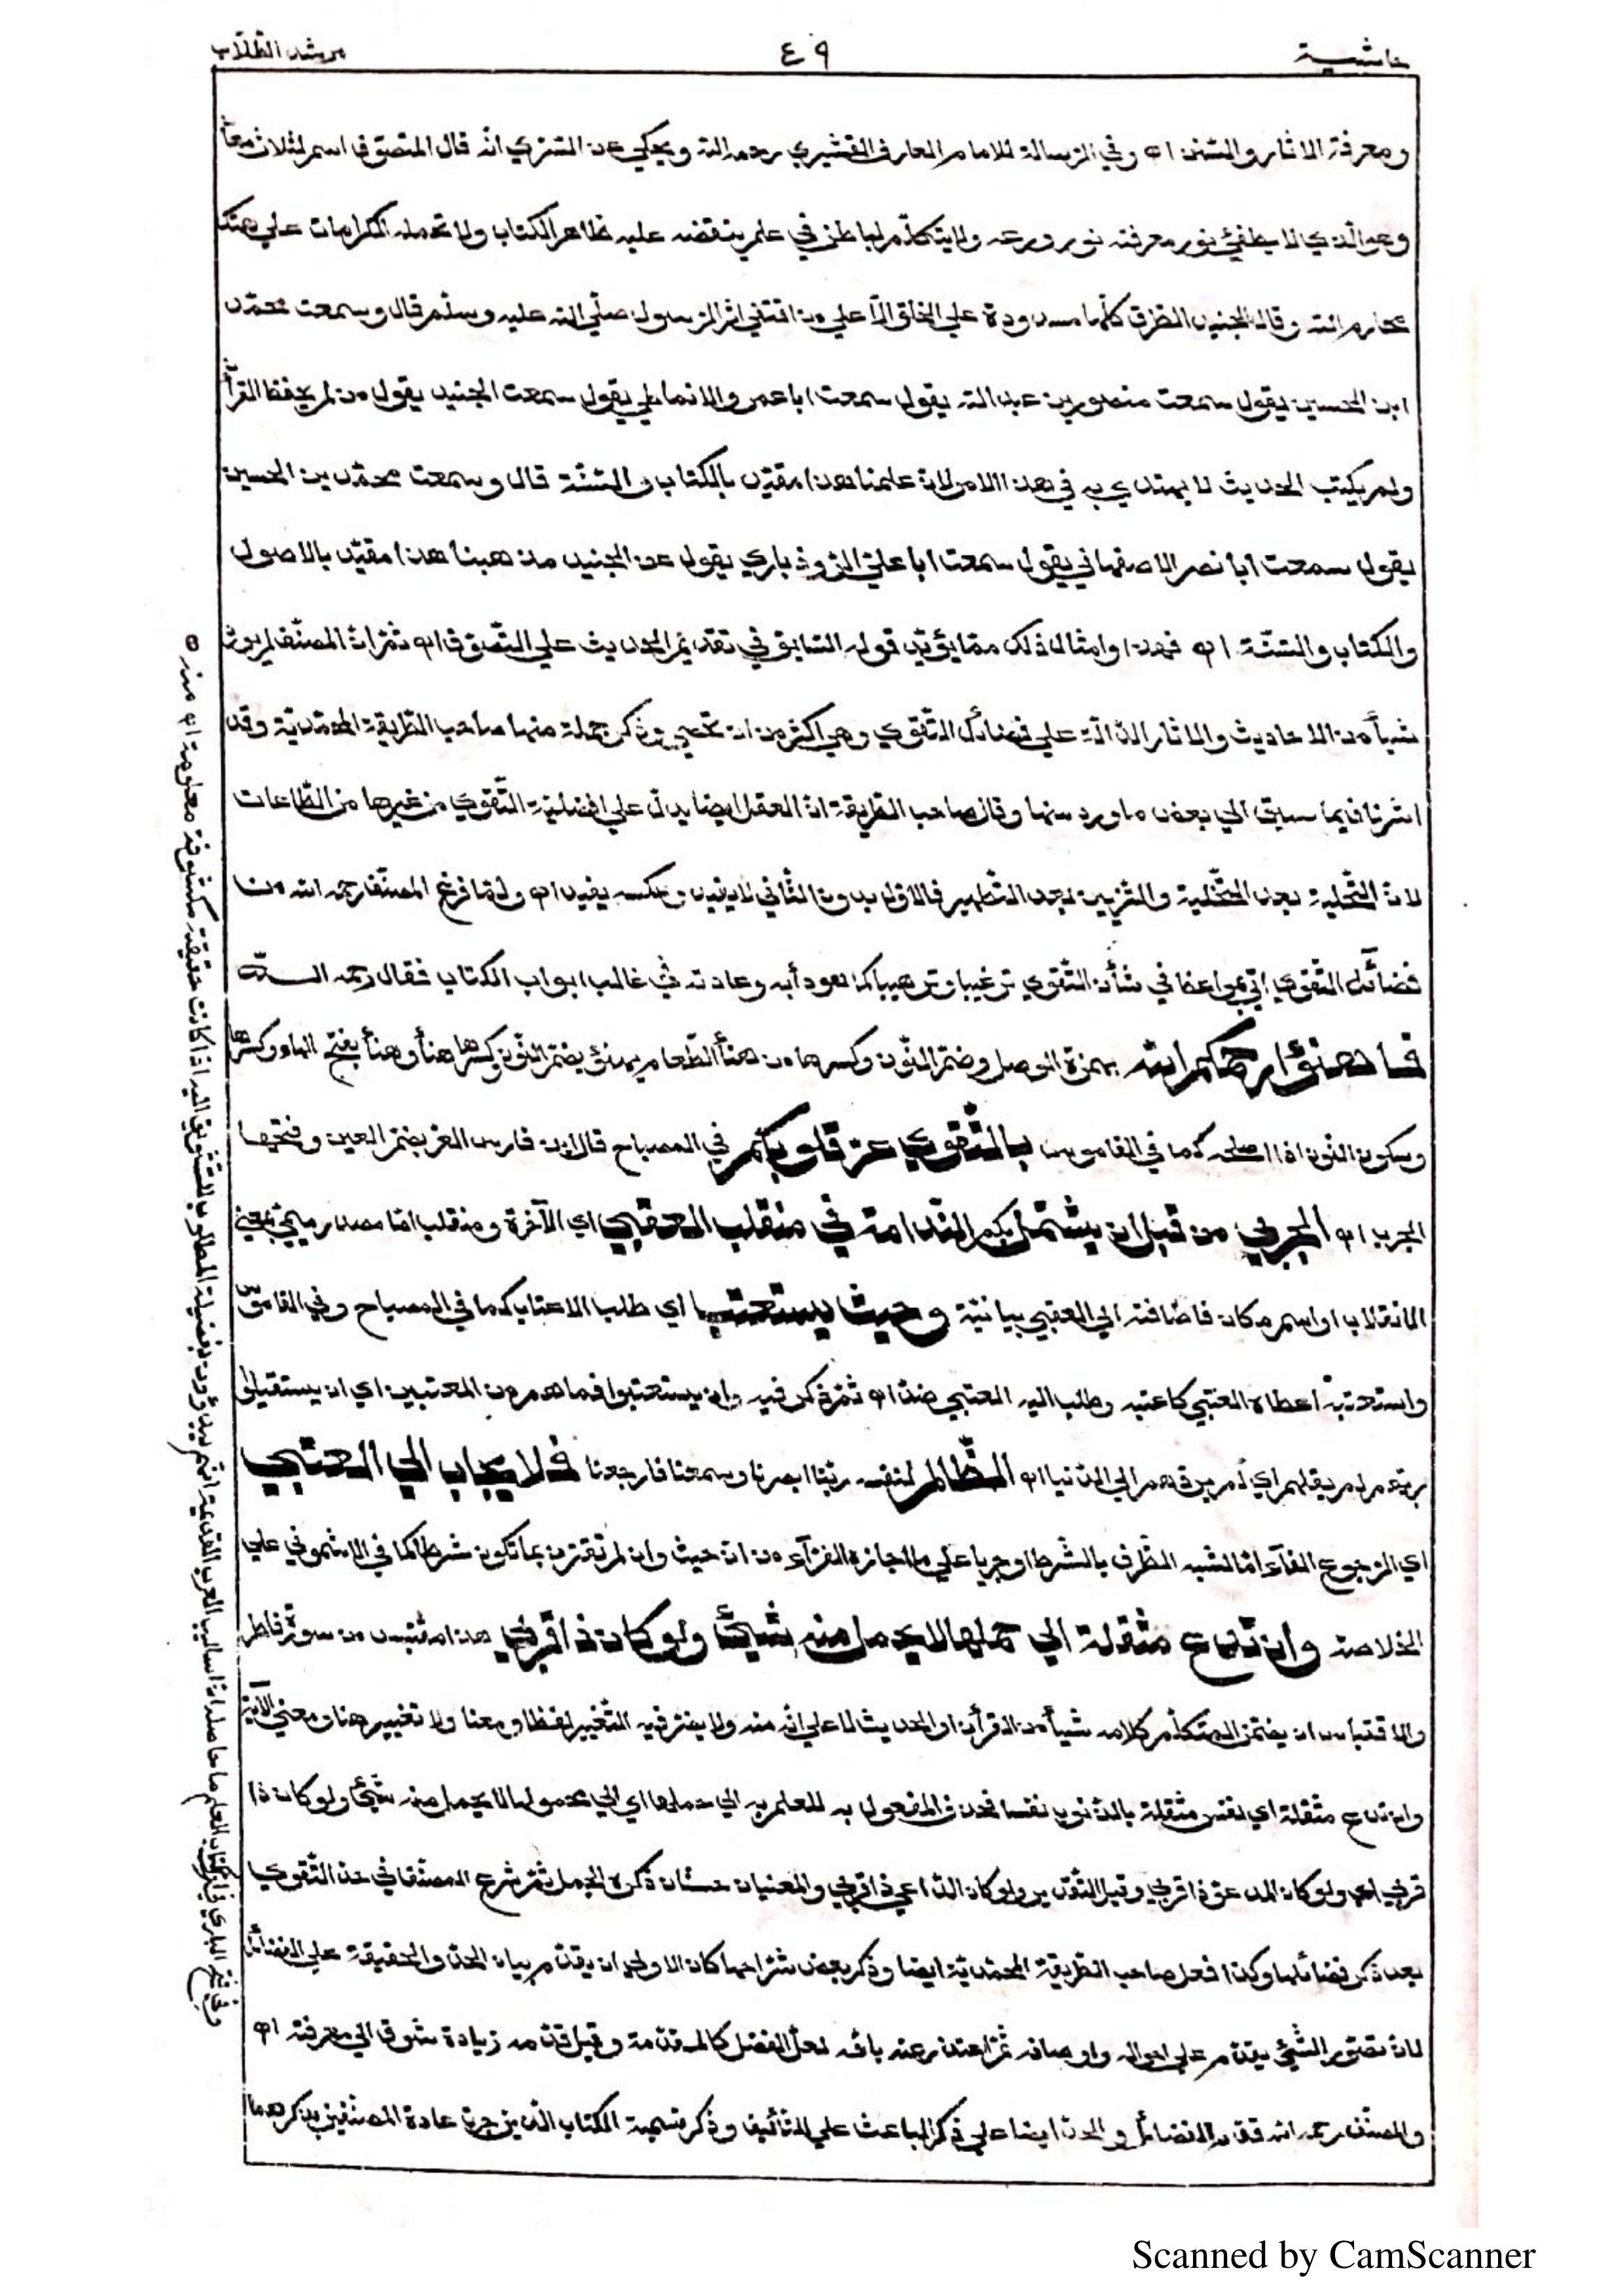 حاشية
٤٩
مرشد الطلاب
ومعرفة الاثار والسنن اه وفي الرسالة للامام العارف القشيري رحمه الله ويحكي عن السري انه قال المتصوف اسم لثلاث معان
وهو الذي لا يطفئ نور معرفته نور ورعه ولا يتكلم بباطن في علم ينقضه عليه ظاهر الكتاب ولا تحمله الكرامات علي هتك
محارم الله وقال الجنيد الطرق كلها مسدودة علي الخلق الا علي من اقتفي اثر الرسول صلي الله عليه وسلم قال وسمعت محمد
ابن الحسين يقول سمعت منصور بن عبد الله يقول سمعت ابا عمرو الانماطي يقول سمعت الجنيد يقول من لم يحفظ القرآن
ولم يكتب الحديث لا يهتدي به في هذا الامر لان علمنا هذا مقيد بالكتاب والسنة قال وسمعت محمد بن الحسين
يقول سمعت ابا نصر الاصفهاني يقول سمعت ابا علي الروذباري يقول عن الجنيد مذهبنا هذا مقيد بالاصول
والكتاب والسنة اه فهذا وامثال ذلك مما يؤيد قوله السابق في تقديم الحديث علي التصوف اه ثم ان المصنف لم يورد
شيأ من الاحاديث والاثار الدالة علي فضائل التقوي وهي اكثر من ان تحصي وذكر جملة منها صاحب الطريقة المحمدية وقد
اشرنا فيما سبق الي بعض ما ورد منها وقال صاحب الطريقة ان العقل ايضا يدل علي افضلية التقوي من غيرها من الطاعات
لان التحلية بعد التخلية والتزيين بعد التطهير فالاول بدون الثاني لا يفيد وعكسه يفيد اه ولما فرغ المصنف رحمه الله من
فضائل التقوي اتي بمواعظ في شأن التقوي ترغيبا وترهيبا كما هو دأبه وعادته في غالب ابواب الكتاب فقال رحمه الله
فاهنؤا رحمكم الله بهمزة الوصل وضم النون وكسرها من هنأ الطعام يهنؤ بضم النون وكسرها هنأ وهنأ بفتح الهاء وكسرها
وسكون النون اذا اصلحه كما في القاموس بالتقوي عر قلوبكم في المصباح قال ابن فارس العر بضم العين وفتحها
الجرب اه الجربي من قبل ان يشتمل بكم الندامة في منقلب العقبي اي الآخرة ومنقلب اما مصدر ميمي بمعني
الانقلاب او اسم مكان فاضافته الي العقبي بيانية وحيث يستعتب اي طلب الاعتاب كما في المصباح وفي القاموس
واستعتبه اعطاه العتبي كاعتبه وطلب اليه العتبي ضد اه ثم ذكر فيه وان يستعتبوا فما هم من المعتبين اي ان يستقيلوا
ربهم لم يقلهم اي لم يردهم الي الدنيا اه الظالم لنفسه ربنا ابصرنا وسمعنا فارجعنا فلا يجاب الي العتبي
اي الرجوع الفآء اما لشبه الظرف بالشرط او جريا علي ما اجازه الفرآء من ان حيث وان لم تقترن بما تكون شرطا كما في الاشموني علي
الخلاصة وان تدع مثقلة الي حملها لا يحمل منه شيئ ولو كان ذا قربي هذا مقتبس من سورة فاطر
والاقتباس ان يضمن المتكلم كلامه شيأ من القرآن او الحديث لا علي انه منه ولا يضر فيه التغيير لفظا ومعنا ولا تغيير هنا ومعني الآية
وان تدع مثقلة اي نفس مثقلة بالذنوب نفسا فحذف المفعول به للعلم به الي حملها اي الي محمولها لا يحمل منه شيئ ولو كان ذا
قربي اي ولو كان المدعو ذا قربي وقيل التقدير ولو كان الداعي ذا قربي والمعنيان حسنان ذكره الجمل ثم شرع المصنف في حد التقوي
بعد ذكر فضائلها وكذا فعل صاحب الطريقة المحمدية ايضا وذكر بعض شراحها كان الاولي ان يقدم بيان الحد والحقيقة علي الفضائل
لان تصور الشيئ يقدم علي احواله واوصافه ثم اعتذر عنه بانه لعل الفضل كالمقدمة وقيل قدمه زيادة شوق الي معرفته اه
والمصنف رحمه الله قدم الفضائل والحد ايضا علي ذكر الباعث علي التأليف وذكر تسمية الكتاب الذين جرت عادة المصنفين بذكرهما
وفي فتح الباري في كتاب العلم ما حاصله ان اساليب العرب القديمة انهم يبدؤون بفضيلة المطلوب للتشويق اليه اذا كانت حقيقته مكشوفة معلومة اه منه